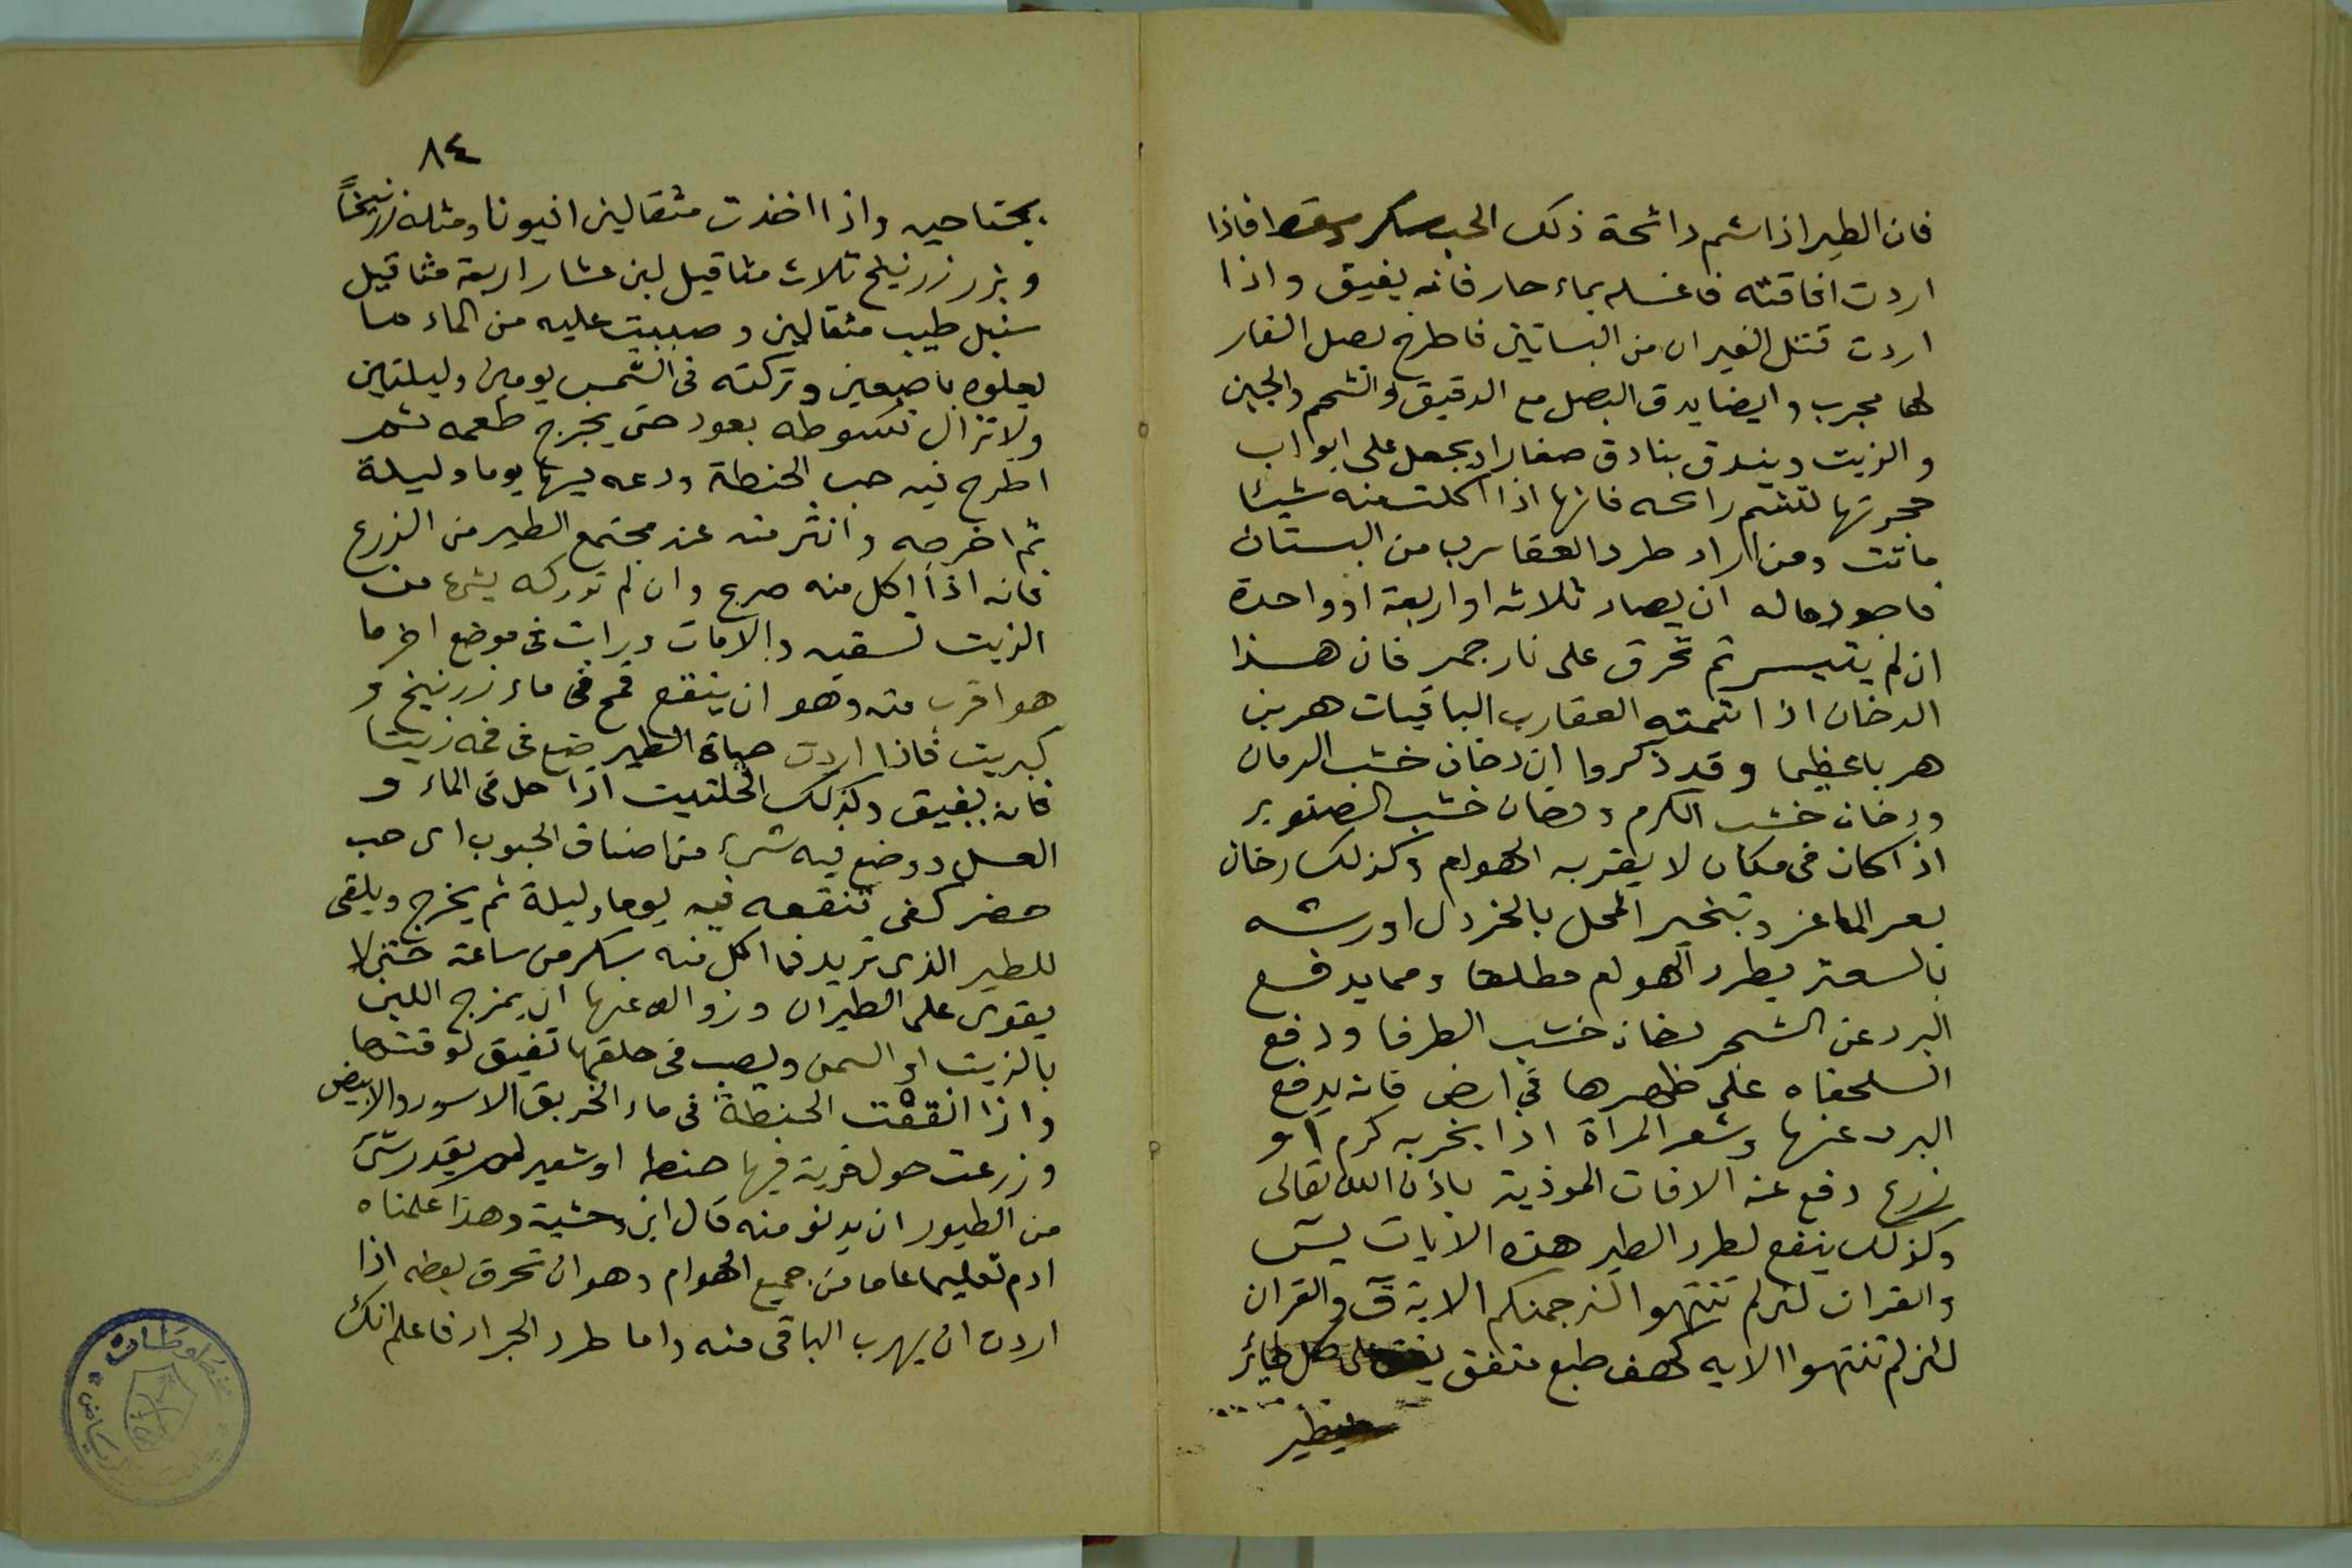 فان الطير اذا شم رائحة ذلك الحب سكر وسقط فاذا
اردت افاقته فاغسله بماء حار فانه يفيق واذا
اردت قتل الفيران من البساتين فاطرح بصل الفار
لها مجرب وايضا يدق البصل مع الدقيق والشحم والجبن
والزيت ويبندق بنادق صغارا ويجعل على ابواب
حجرتها لتشم رائحه فانها اذا اكلت منه شيئا
ماتت ومن اراد طرد العقارب من البستان
فاجود ماله ان يصاد ثلاثه او اربعة او واحدة
ان لم يتيسر ثم تحرق على نار جمر فان هذا
الدخان اذا شمته العقارب الباقيات هربن
هربا عظيما وقد ذكروا ان دخان خشب الرمان
ودخان خشب الكرم ودخان خشب الصنوبر
اذا كان فى مكان لا يقربه الهوام وكذلك دخان
بعر الماعز وتبخير المحل بالخردل او رشه
بالسعتر يطرد الهوام مطلقا ومما يدفع
البرد عن الشجر دخان خشب الطرفا ودفع
السلحفاه على ظهرها فى ارض فانه يدفع
البرد عنها وشعر المراة اذا بخر به كرم او
زرع دفع عنه الافات الموذية باذن الله تعالى
وكذلك ينفع لطرد الطير هذه الايات يس
والقران لئن لم تنتهوا لنرجمنكم الاية ق والقران
لئن لم تنتهوا الايه كهف طبع متفق على كل طائر
يطير
٨٤
بجناحيه واذا اخذت مثقالين افيونا ومثله زرنيخاً
وبزر زرنيخ ثلاث مثاقيل لبن عشار اربعة مثاقيل
سنبل طيب مثقالين وصببت عليه من الماء ما
يعلوه باصبعين وتركته فى الشمس يومين وليلتين
ولا تزال تسوطه بعود حتى يخرج طعمه ثم
اطرح فيه حب الحنطة ودعه فيها يوما وليلة
ثم اخرجه وانثر منه عند مجتمع الطير من الزرع
فانه اذا اكل منه صرع وان لم تدركه بشئ من
الزيت تسقيه والا مات ورايت فى موضع اخر ما
هو اقرب منه وهو ان ينقع قمح فى ماء زرنيخ و
كبريت فاذا اردت حياة الطير ضع فى فمه زيتا
فانه يفيق وكذلك الحلتيت اذا حل فى الماء و
العسل ووضع فيه شئ من اصناف الحبوب اى حب
حضر كفى تنقعه فيه يوما وليلة ثم يخرج ويلقى
للطير الذى تريد فما اكل منه سكر من ساعة حتى لا
يقوى على الطيران وزواله عنها ان يمزج اللبن
بالزيت او السمن ويصب فى حلقها تفيق لوقتها
واذا انقعت الحنطة فى ماء الخربق الاسود والابيض
وزرعت حول قرية فيها حنطه او شعير لم يقدر شئ
من الطيور ان يدنو منه قال ابن وحشية وهذا علمناه
ادم تعليما عاما من جميع الهوام وهو ان تحرق بعضه اذا
اردت ان يهرب الباقى منه واما طرد الجراد فاعلم انك